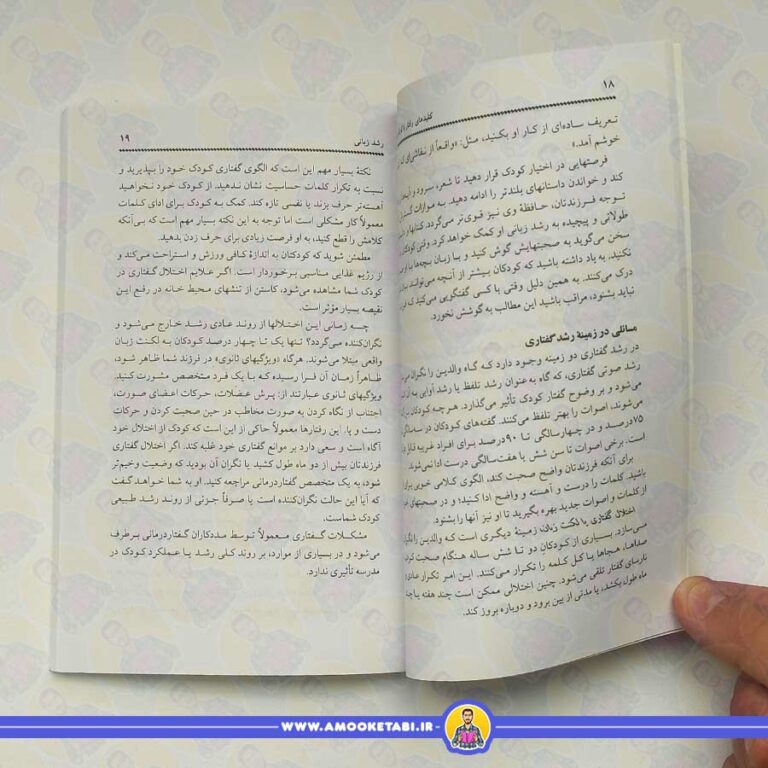 ۱۸
کلیدهای رفتار با
تعریف ساده‌ای از کار او بکنید، مثل: «واقعاً از نقاشی‌ای که
خوشم آمد.»
فرصتهایی در اختیار کودک قرار دهید تا شعر، سرود و
کند و خواندن داستانهای بلندتر را ادامه دهید. به موازات
توجه فرزندتان، حافظهٔ وی نیز قوی‌تر می‌گردد. کتابهای
طولانی و پیچیده به رشد زبانی او کمک خواهد کرد. وقتی کودکتان
سخن می‌گوید به صحبتهایش گوش کنید و با زبان بچه‌ها با او
نکنید. به یاد داشته باشید که کودکان بیشتر از آنچه می‌توانند
درک می‌کنند. به همین دلیل وقتی با کسی گفتگویی می‌کنید که
نباید بشنود، مراقب باشید این مطالب به گوشش نخورد.
مسائلی در زمینهٔ رشد گفتاری
در رشد گفتاری دو زمینه وجود دارد که گاه والدین را نگران
رشد صوتی گفتاری، که گاه به عنوان رشد تلفظ یا رشد آوایی به آن
می‌شود و بر وضوح گفتار کودک تأثیر می‌گذارد. هر چه کودکان
می‌شوند، اصوات را بهتر تلفظ می‌کنند. گفته‌های کودکان در
۷۵ درصد و در چهارسالگی تا ۹۰ درصد برای افراد غریبه قابل
است. برخی اصوات تا سن شش یا هفت‌سالگی درست ادا نمی‌شوند.
برای آنکه فرزندتان واضح صحبت کند، الگوی کلامی خوبی برای
باشید. کلمات را درست و آهسته و واضح ادا کنید؛ و در صحبتهای
از کلمات و اصوات جدید بهره بگیرید تا او نیز آنها را بشنود.
اختلال گفتاری یا لکنت زبان، زمینهٔ دیگری است که والدین را
می‌سازد. بسیاری از کودکان دو تا شش ساله هنگام صحبت
صداها، هجاها یا کل کلمه را تکرار می‌کنند. این امر تکرار عادی
نارسای گفتار تلقی می‌شود. چنین اختلالی ممکن است چند هفته یا
ماه طول بکشد، یا مدتی از بین برود و دوباره بروز کند.
رشد زبانی
۱۹
نکتهٔ بسیار مهم این است که الگوی گفتاری کودک خود را بپذیرید و
نسبت به تکرار کلمات حساسیت نشان ندهید. از کودک خود نخواهید
آهسته‌تر حرف بزند یا نفسی تازه کند. کمک به کودک برای ادای کلمات
معمولاً کار مشکلی است اما توجه به این نکته بسیار مهم است که بی‌آنکه
کلامش را قطع کنید، به او فرصت زیادی برای حرف زدن بدهید.
مطمئن شوید که کودکتان به اندازهٔ کافی ورزش و استراحت می‌کند و
از رژیم غذایی مناسبی برخوردار است. اگر علایم اختلال گفتاری در
کودک شما مشاهده می‌شود، کاستن از تنشهای محیط خانه در رفع این
نقیصه بسیار مؤثر است.
چه زمانی این اختلالها از روند عادی رشد خارج می‌شود و
نگران‌کننده می‌گردد؟ تنها یک تا چهار درصد کودکان به لکنت زبان
واقعی مبتلا می‌شوند. هرگاه «ویژگیهای ثانوی» در فرزند شما ظاهر شود،
ظاهراً زمان آن فرا رسیده که با یک فرد متخصص مشورت کنید.
ویژگیهای ثانوی عبارتند از: پرش عضلات، حرکات اعضای صورت،
اجتناب از نگاه کردن به صورت مخاطب در حین صحبت کردن و حرکات
دست و پا. این رفتارها معمولاً حاکی از این است که کودک از اختلال خود
آگاه است و سعی دارد بر موانع گفتاری خود غلبه کند. اگر اختلال گفتاری
فرزندتان بیش از دو ماه طول کشید یا نگران آن بودید که وضعیت وخیم‌تر
شود، به یک متخصص گفتاردرمانی مراجعه کنید. او به شما خواهد گفت
که آیا این حالت نگران‌کننده است یا صرفاً جزئی از روند رشد طبیعی
کودک شماست.
مشکلات گفتاری معمولاً توسط مددکاران گفتاردرمانی برطرف
می‌شود و در بسیاری از موارد، بر روند کلی رشد یا عملکرد کودک در
مدرسه تأثیری ندارد.
WWW.AMOOKETABI.IR